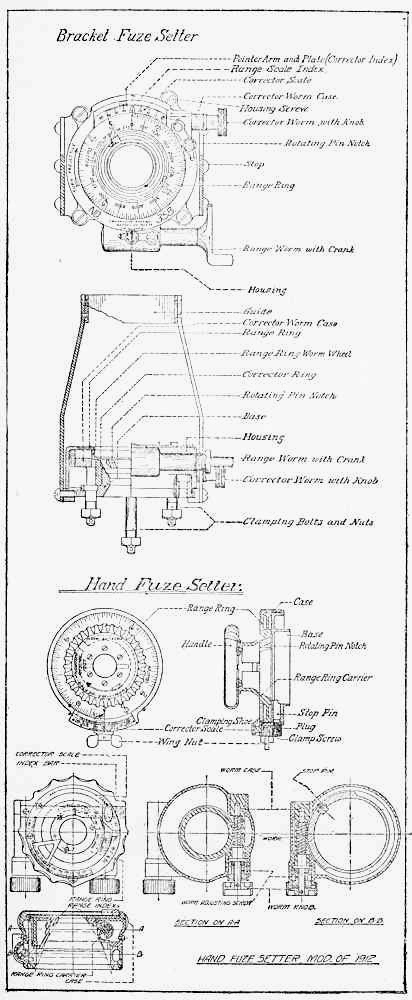 Bracket Fuze Setter
Pointer Arm and Plate (Corrector Index)
Range Scale Index
Corrector Scale
Corrector Worm Case
Housing Screw
Corrector Worm with Knob
Rotating Pin Notch
Stop
Range Ring
Range Worm with Crank
Housing
Guide
Corrector Worm Case
Range Ring
Range Ring Worm Wheel
Corrector Ring
Rotating Pin Notch
Base
Housing
Range Worm with Crank
Corrector Worm with Knob
Clamping Bolts and Nuts
Hand Fuze Setter.
Range Ring
Case
Handle
Base
Rotating Pin Notch
Range Ring Carrier
Clamping Shoe
Stop Pin
Corrector Scale
Plug
Wing Nut
Clamp Screw
CORRECTOR SCALE
INDEX BAR
WORM CASE
STOP PIN
WORM
RANGE RING
RANGE INDEX
WORM ADJUSTING SCREW
WORM KNOB
SECTION ON A-A
SECTION ON B-B
A
A
B
B
RANGE RING CARRIER
CASE
HAND FUZE SETTER MOD. OF 1912